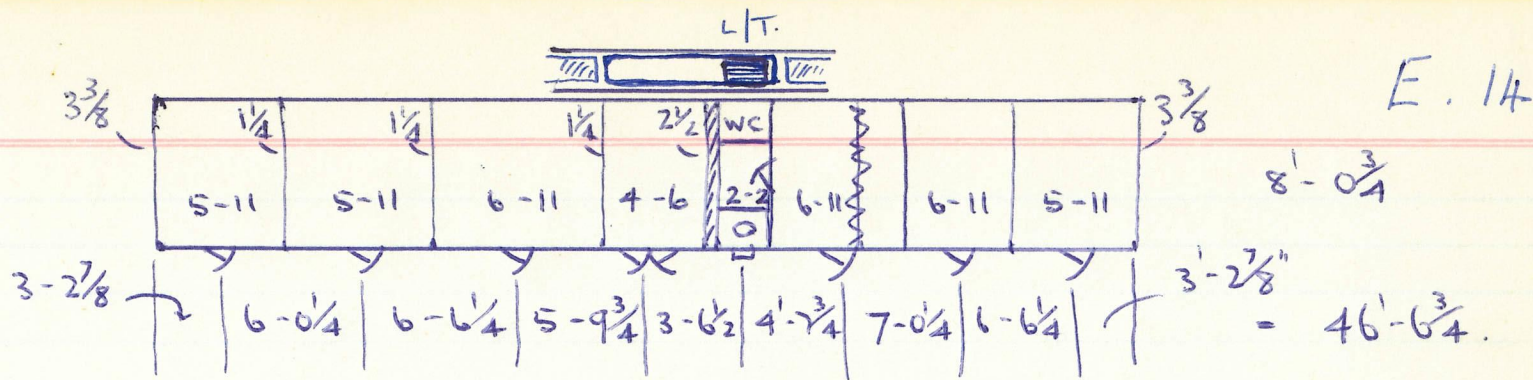 L/T.
E. 14
3 3/8 1 1/4 1 1/4 1 1/4 2 1/2 WC 3 3/8
8'- 0 3/4
5-11 5-11 6-11 4-6 2-2 6-11 6-11 5-11
3-2 7/8 3'-2 7/8"
6-0 1/4 6-6 1/4 5-9 3/4 3-6 1/2 4'-7 3/4 7-0 1/4 6-6 1/4 = 46'-6 3/4.